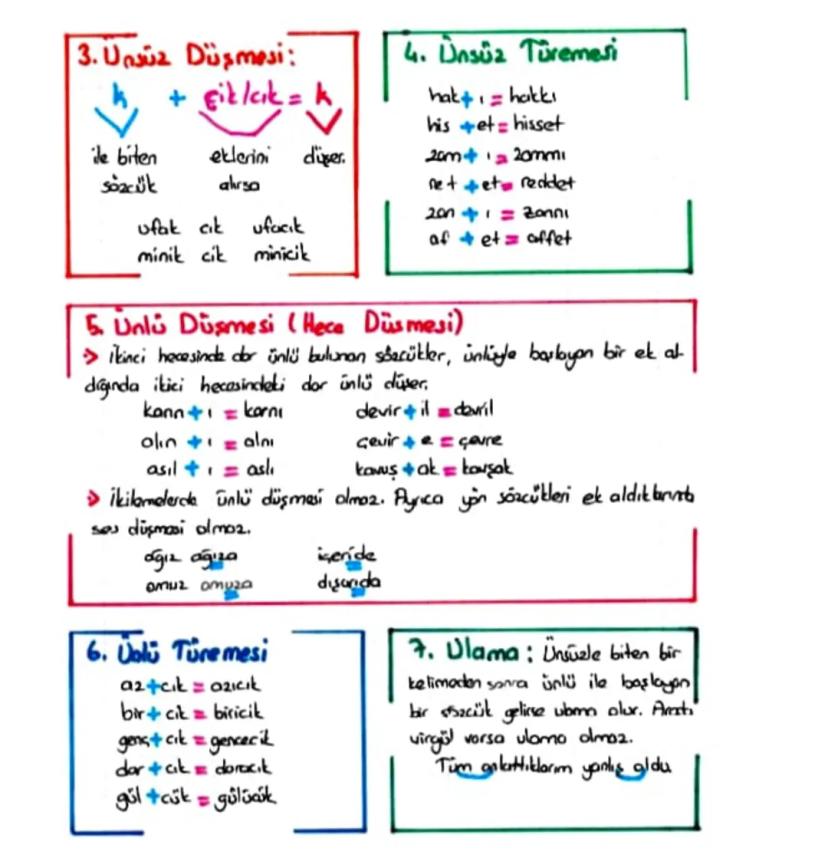 3. Ünsüz Düşmesi:
k + çik/cık = k
ile biten eklerini düşer.
sözcük alırsa
ufak cık ufacık
minik cik minicik
4. Ünsüz Türemesi
hak + ı = hakkı
his + et = hisset
zam + ı = zammı
ret + et = reddet
zan + ı = zannı
af + et = affet
5. Ünlü Düşmesi (Hece Düşmesi)
> İkinci hecesinde dar ünlü bulunan sözcükler, ünlüyle başlayan bir ek al-
dığında ikici hecesindeki dar ünlü düşer.
karın + ı = karnı devir + il = devril
alın + ı = alnı çevir + e = çevre
asıl + ı = aslı kavuş + ak = kavşak
> İkilemelerde ünlü düşmesi olmaz. Ayrıca yön sözcükleri ek aldıklarında
ses düşmesi olmaz.
ağız ağıza içeride
omuz omuza dışarıda
6. Ünlü Türemesi
az + cık = azıcık
bir + cik = biricik
genç + cik = gencecik
dar + cık = daracık
gül + cük = gülücük
7. Ulama: Ünsüzle biten bir
kelimeden sonra ünlü ile başlayan
bir sözcük gelirse ulama olur. Arada
virgül varsa ulama olmaz.
Tüm anlattıklarım yanlış oldu